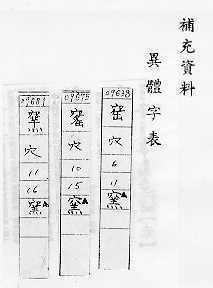 補充資料
異體字表
07638
窑
穴
6
11
窯▲
07675
窰
穴
10
15
窯▲
穴
11
16
窯▲